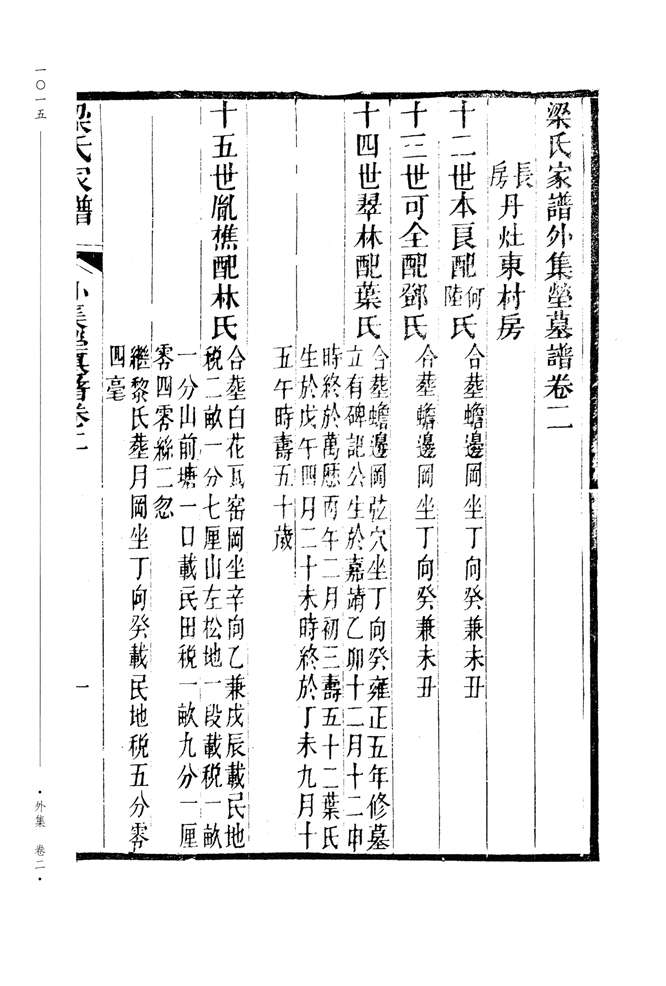 梁氏家譜外集塋墓譜卷二
長房丹灶東村房
十二世本良配何陸氏
合葬蟾邊岡坐丁向癸兼未丑
十三世可全配鄧氏
合葬蟾邊岡坐丁向癸兼未丑
十四世翠林配葉氏
合葬蟾邊岡弦穴坐丁向癸雍正五年修墓
立有碑記公生於嘉靖乙卯十二月十二申
時終於萬曆丙午二月初三壽五十二葉氏
生於戊午四月二十未時終於丁未九月十
五午時壽五十歲
十五世胤樵配林氏
合葬白花瓦窑岡坐辛向乙兼戌辰載民地
税二畝一分七厘山左松地一段載税一畝
一分山前塘一口載民田税一畝九分一厘
零四零絲二忽
繼黎氏葬月岡坐丁向癸載民地税五分零
四毫
梁氏家譜
外集塋墓譜卷二
一
一〇一五
·外集 卷二·